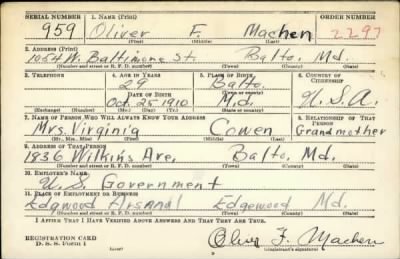 SERIAL NUMBER 1. NAME (Print) ORDER NUMBER
959 Oliver F. Machen 2297
(First) (Middle) (Last)
2. ADDRESS (Print)
1054 W. Baltimore St. Balto. Md.
(Number and street or R. F. D. number) (Town) (County) (State)
3. TELEPHONE 4. AGE IN YEARS 5. PLACE OF BIRTH 6. COUNTRY OF CITIZENSHIP
29 Balto.
DATE OF BIRTH (Town or county)
Oct. 25-1910 Md. U.S.A.
(Exchange) (Number) (Mo.) (Day) (Yr.) (State or country)
7. NAME OF PERSON WHO WILL ALWAYS KNOW YOUR ADDRESS 8. RELATIONSHIP OF THAT PERSON
Mrs. Virginia Cowen Grandmother
(Mr., Mrs., Miss) (First) (Middle) (Last)
9. ADDRESS OF THAT PERSON
1836 Wilkins Ave, Balto. Md.
(Number and street or R. F. D. number) (Town) (County) (State)
10. EMPLOYER'S NAME
U.S. Government
11. PLACE OF EMPLOYMENT OR BUSINESS
Edgwood Arsanal Edgewood Md.
(Number and street or R. F. D. number) (Town) (County) (State)
I AFFIRM THAT I HAVE VERIFIED ABOVE ANSWERS AND THAT THEY ARE TRUE.
REGISTRATION CARD
D. S. S. FORM 1
Oliver F. Machen
(Registrant's signature)